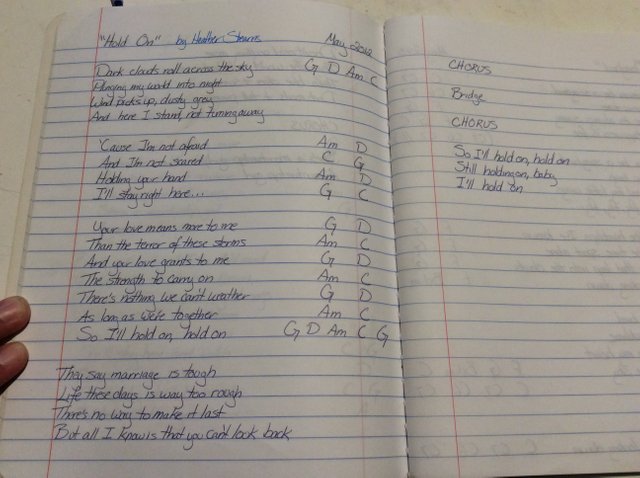 "Hold On" by Heather Stearns May 2012
Dark clouds roll across the sky G D Am C
Plunging my world into night
Wind picks up, dusty grey
And here I stand, not turning away
'Cause I'm not afraid Am D
And I'm not scared C G
Holding your hand Am D
I'll stay right here... G C
Your love means more to me G D
Than the terror of these storms Am C
And your love grants to me G D
The strength to carry on Am C
There's nothing we can't weather G D
As long as we're together Am C
So I'll hold on, hold on G D Am C G
They say marriage is tough
Life these days is way too rough
There's no way to make it last
But all I know is that you can't look back
CHORUS
Bridge
CHORUS
So I'll hold on, hold on
Still holding on, baby
I'll hold on